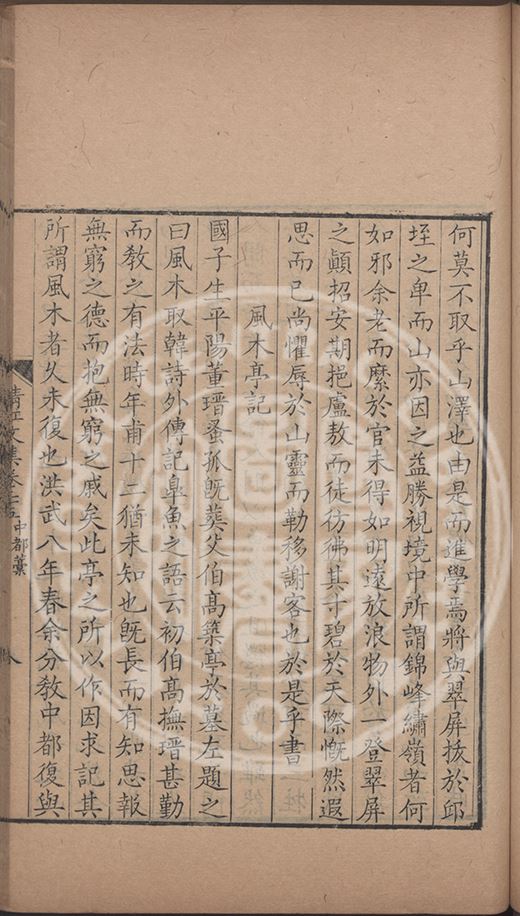 何莫不取乎山澤也由是而進學焉將與翠屏抜於邱
垤之卑而山亦因之益勝視境中所謂錦峰繡嶺者何
如邪余老而縻於官未得如明遠放浪物外一登翠屏
之顛招安期挹盧敖而徒彷彿其寸碧於天際慨然遐
思而已尚懼辱於山靈而勒移謝客也於是乎書
風木亭記
國子生平陽董瑨蚤孤旣葬父伯髙築亭於墓左題之
曰風木取韓詩外傳記臯魚之語云初伯髙撫瑨甚勤
而敎之有法時年甫十二猶未知也旣長而有知思報
無窮之德而抱無窮之戚矣此亭之所以作因求記其
所謂風木者久未復也洪武八年春余分敎中都復與
清江文集卷十五中都藁